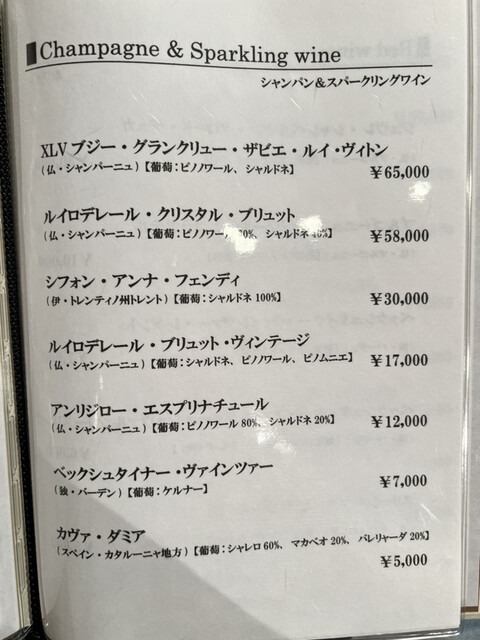 Champagne & Sparkling wine
シャンパン＆スパークリングワイン
XLV ブジー・グランクリュー・ザビエ・ルイ・ヴィトン
(仏・シャンパーニュ)【葡萄:ピノノワール、シャルドネ】
￥65,000
ルイロデレール・クリスタル・ブリュット
(仏・シャンパーニュ)【葡萄:ピノノワール 60%、シャルドネ 40%】
￥58,000
シフォン・アンナ・フェンディ
(伊・トレンティノ州トレント)【葡萄:シャルドネ 100%】
￥30,000
ルイロデレール・ブリュット・ヴィンテージ
(仏・シャンパーニュ)【葡萄:シャルドネ、ピノノワール、ピノムニエ】
￥17,000
アンリジロー・エスプリナチュール
(仏・シャンパーニュ)【葡萄:ピノノワール 80%、シャルドネ 20%】
￥12,000
ベックシュタイナー・ヴァインツァー
(独・バーデン)【葡萄:ケルナー】
￥7,000
カヴァ・ダミア
(スペイン・カタルーニャ地方)【葡萄:シャレロ 60%、マカベオ 20%、パレリャーダ 20%】
￥5,000